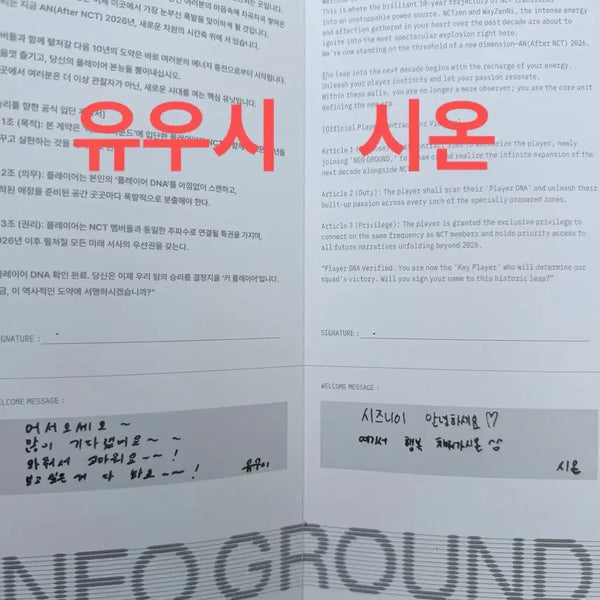 여러분의 미음속에 차곡차곡 쌓여온
이곳에서 가장 눈부신 폭발을 맞이하게 될 것입니다.
지금 AN(After NCT) 2026년, 새로운 차원의 시간축 위에 서 있습니다.
함께 펼쳐갈 다음 10년의 도약은 바로 여러분의 에너지 충전으로부터 시작됩니다.
즐기고, 당신의 플레이어 본능을 뿜어내십시오.
여러분은 더 이상 관찰자가 아닌, 새로운 시대를 여는 핵심 유닛입니다.
향한 공식 입단
1조 (목적): 본 계약은
2조 (의무): 플레이어는 본인의 '플레이어 DNA'를 아낌없이 스캔하고,
애정을 준비된 공간 곳곳마다 폭발적으로 분출해야 한다.
3조 (권리): 플레이어는 NCT 멤버들과 동일한 주파수로 연결될 특권을 가지며,
이후 펼쳐질 모든 미래 서사의 우선권을 갖는다.
DNA 확인 완료. 당신은 이제 우리 팀의 승리를 결정지을 '키 플레이어'입니다.
이 역사적인 도약에 서명하시겠습니까?"
유우시
GNATURE :
ELCOME MESSAGE :
어서오세요~
많이 기다렸어요~ ~
와줘서 고마워요~~!
보고 싶은 거 다 봐요~~!
유우시
This is where the brilliant 10-year trajectory of NCT
into an unstoppable power source. NCTzen and WayZenNi, the intense
and affection gathered in your heart over the past decade are about to
ignite into the most spectacular explosion right here.
We're now standing on the threshold of a new dimension-AN(After NCT) 2026.
The leap into the next decade begins with the recharge of your energy.
Unleash your player instincts and let your passion resonate.
Within these walls, you are no longer a mere observer; you are the core unit
defining the new era.
[Official Player
Article 1 contract aims to authorize the player, newly
joining 'NEO GROUND,' to and realize the infinite expansion of the
next decade alongside
Article 2 (Duty): The player shall scan their 'Player DNA' and unleash their
built-up passion across every inch of the specially prepared zones.
Article 3 (Privilege): The player is granted the exclusive privilege to
connect on the same frequency as NCT members and holds priority access to
all future narratives unfolding beyond 2026.
"Player DNA Verified. You are now the 'Key Player' who will determine our
squad's victory. Will you sign your name to this historic leap?"
시온
SIGNATURE :
WELCOME MESSAGE :
시즈니이 안녕하세요♡
여기서 행복 채워가시온 ^^
시온
NEO GROUND